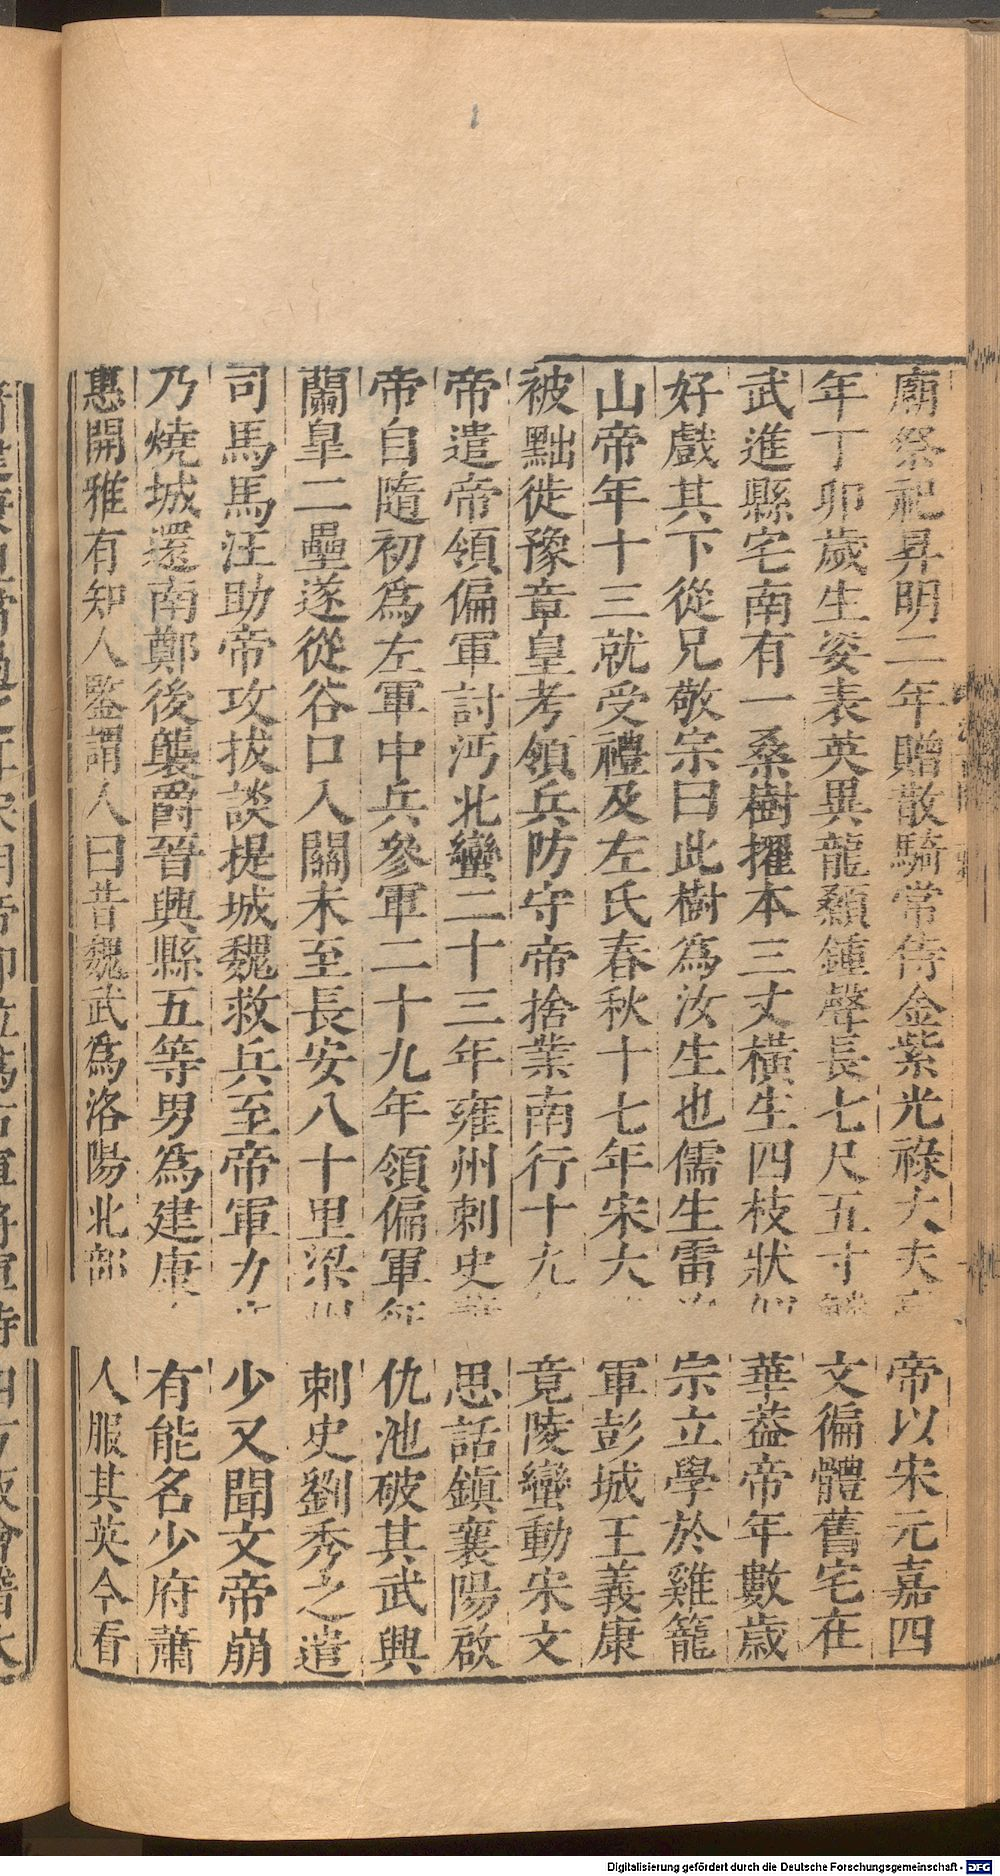 廟祭祀昇明二年贈散騎常侍金紫光祿大夫帝以宋元嘉四
年丁卯歲生姿表英異龍顙鍾聲長七尺五寸文徧體舊宅在
武進縣宅南有一桑樹擢本三丈橫生四枝狀華蓋帝年數歲
好戲其下從兄敬宗曰此樹爲汝生也儒生雷宗立學於雞籠
山帝年十三就受禮及左氏春秋十七年宋大軍彭城王義康
被黜徙豫章皇考領兵防守帝捨業南行十九竟陵蠻動宋文
帝遣帝領偏軍討沔北蠻二十三年雍州刺史思話鎮襄陽啟
帝自隨初爲左軍中兵參軍二十九年領偏軍仇池破其武興
蘭皐二壘遂從谷口入關未至長安八十里梁刺史劉秀之遣
司馬馬汪助帝攻拔談提城魏救兵至帝軍力少又聞文帝崩
乃燒城還南鄭後襲爵晉興縣五等男爲建康有能名少府蕭
惠開雅有知人鑒謂人曰昔魏武爲洛陽北部人服其英今看
Digitalisierung gefördert durch die Deutsche Forschungsgemeinschaft - DFG